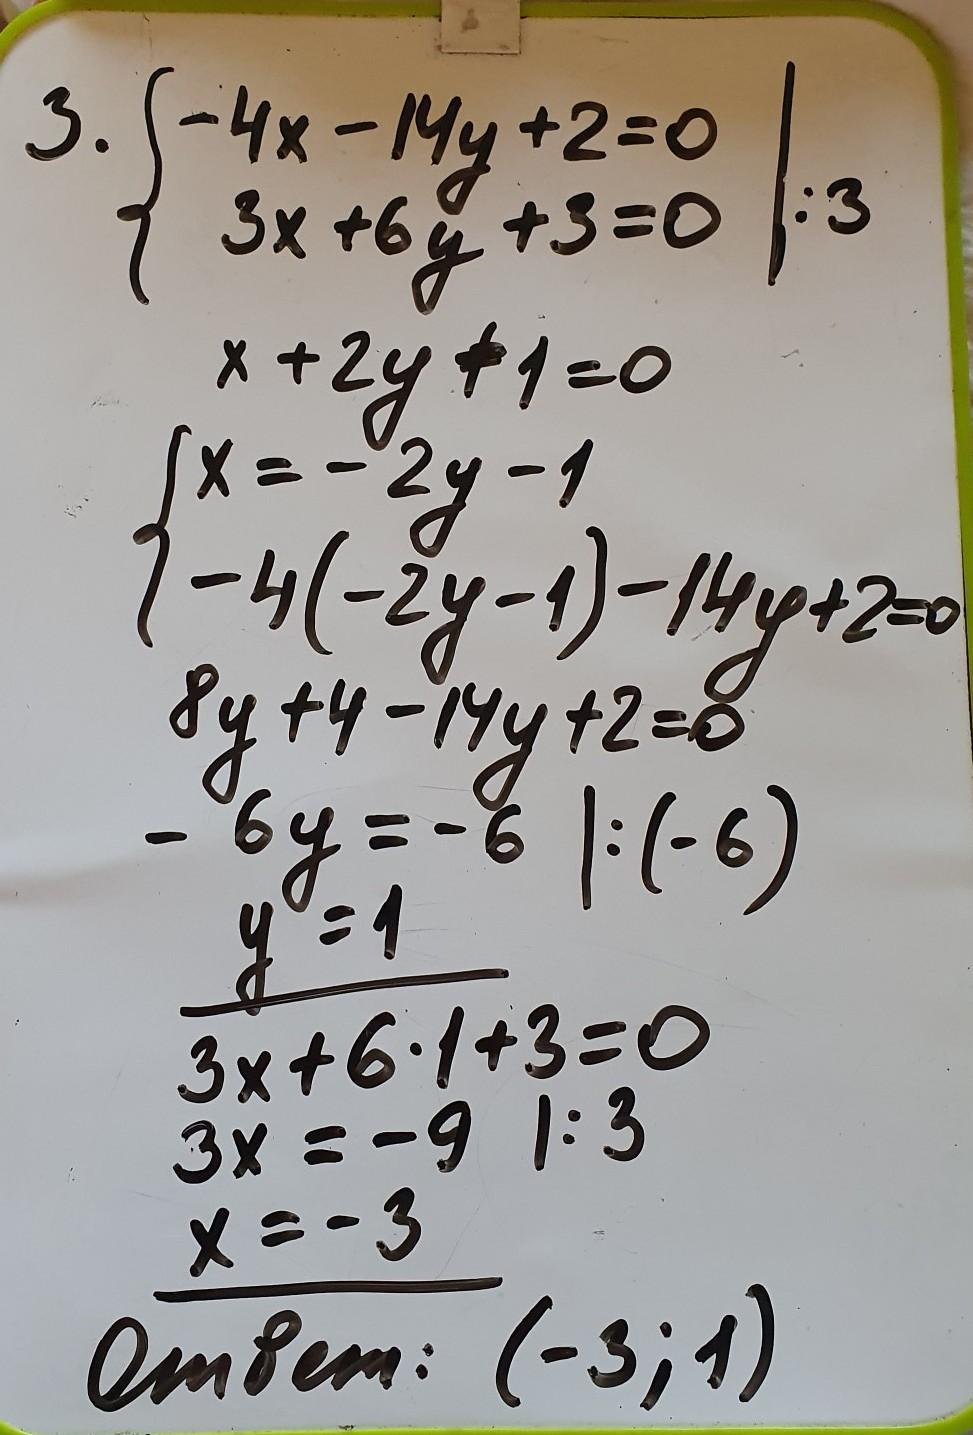 3. { -4x - 14y + 2 = 0
3x + 6y + 3 = 0 | : 3
x + 2y + 1 = 0
{ x = - 2y - 1
-4(-2y - 1) - 14y + 2 = 0
8y + 4 - 14y + 2 = 0
- 6y = - 6 | : (-6)
y = 1
3x + 6 · 1 + 3 = 0
3x = - 9 | : 3
x = - 3
Ответ: (-3; 1)